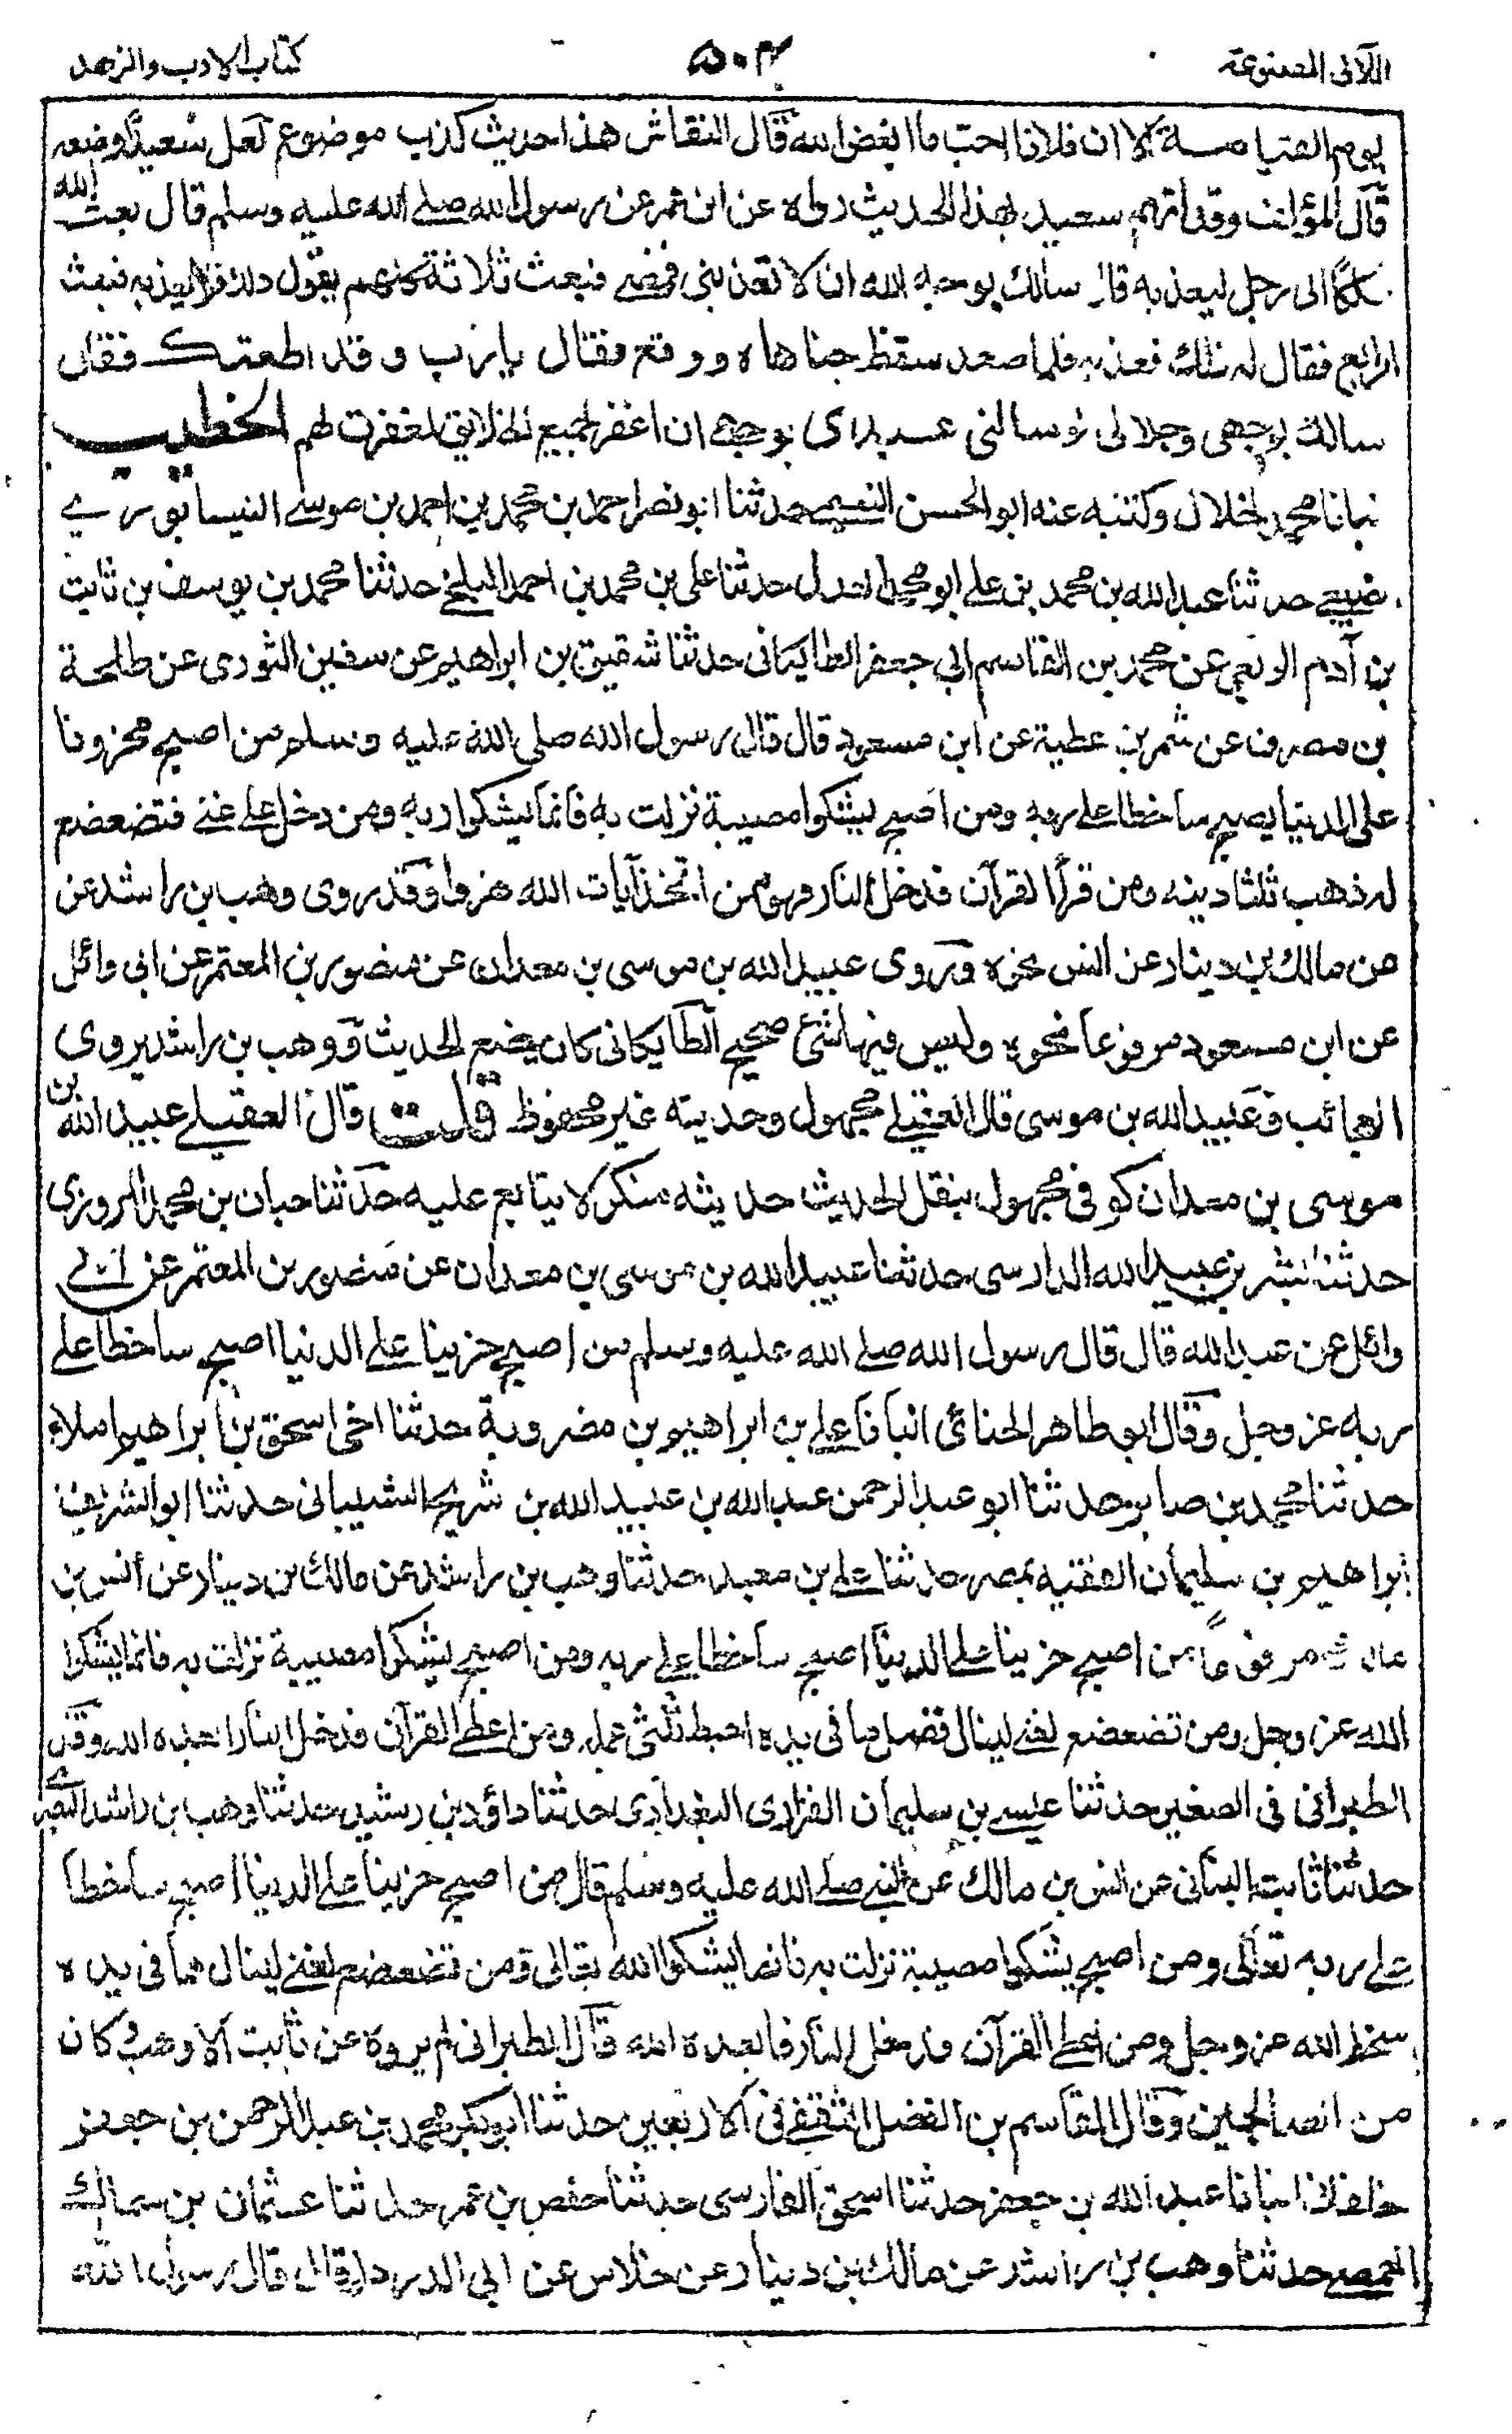 اللآلى المصنوعة ٥٠٣ كتاب الادب والزهد
يوم القيامة الا ان فلانا احب ما ابغض الله قال النقاش هذا حديث كذب موضوع لعل سعيدا وضعه
قال المؤلف وقد اتهم سعيد بهذا الحديث رواه عن ابن عمر عن رسول الله صلے الله عليه وسلم قال بعث الله
ملكا الى رجل ليعذبه قال سالك بوجه الله ان لا تعذبنى فمضے فبعث ثلاثة كلهم يقول ذلك فلا يعذبه فبعث
الرابع فقال له ذلك فعذبه فلما صعد سقط جناهاه ووقع فقال يا رب وقد اطعتك فقال
سالك بوجهى وجلالى لو سالنى عبدى بوجهے ان اغفر لجميع الخلايق لغفرت لهم الخطيب
نبانا محمد الخلال وكتبه عنه ابو الحسن النعيمے حدثنا ابو نصر احمد بن محمد بن احمد بن موسے النيسابورے
حدثنا عبد الله بن محمد بن علے ابو محمد حدثنا على بن محمد بن احمد البلخے حدثنا محمد بن يوسف بن ثابت
بن آدم عن محمد بن القاسم ابي جعفر الطايكانى حدثنا شقيق بن ابراهيم عن سفين الثورى عن طلحة
بن مصرف عن شمر بن عطية عن ابن مسعود قال قال رسول الله صلى الله عليه وسلم من اصبح محزونا
على الدنيا يصبح ساخطا على ربه ومن اصبح يشكوا مصيبة نزلت به فانما يشكوا ربه ومن دخل علے غنے فتضعضع
له ذهب ثلثا دينه ومن قرأ القرآن فدخل النار فهو ممن اتخذ آيات الله هزوا وقد روى وهب بن راشد عن
من مالك بن دينار عن انس نحوه وروى عبيد الله بن موسى بن معدان عن منصور بن المعتمر عن ابى وائل
عن ابن مسعود مرفوعا نحوه وليس فيها شئ صحيح الطايكانى كان يضع الحديث ووهب بن راشد يروى
العجائب وعبيد الله بن موسى قال العقيلے مجهول وحديثه غير محفوظ قلت قال العقيلے عبيد الله بن
موسى بن معدان كوفى مجهول بنقل الحديث حديثه منكر لا يتابع عليه حدثنا حبان بن محمد المروزى
حدثنا بشر بن عبيد الله الدارسى حدثنا عبيد الله بن موسى بن معدان عن منصور بن المعتمر عن ابے
وائل عن عبد الله قال قال رسول الله صلے الله عليه وسلم من اصبح حزينا علے الدنيا اصبح ساخطا علے
ربه عز وجل وقال ابو طاهر الحنائى انبانا علے بن ابراهيم بن مضروبة حدثنا اخى اسحق بن ابراهيم املاء
حدثنا محمد بن صابر حدثنا ابو عبد الرحمن عبد الله بن عبيد الله بن شريح الشيبانى حدثنا ابو الشريف
ابراهيم بن سليمان الفقيه بمصر حدثنا علے بن معبد حدثنا وهب بن راشد عن مالك بن دينار عن أنس بن
مالك مرفوعًا من اصبح حزينا علے الدنيا اصبح ساخطا علے ربه ومن اصبح يشكوا مصيبة نزلت به فانما يشكوا
الله عز وجل ومن تضعضع لغنے لينال فضل ما فى يده احبط ثلثى عمله ومن اعطے القرآن فدخل النار ابعده الله وقال
الطبرانى فى الصغير حدثنا عيسے بن سليمان الفزارى البغدادى حدثنا داؤد بن رشيد حدثنا وهب بن راشد البصرے
حدثنا ثابت البنانى عن انس بن مالك عن النبے صلے الله عليه وسلم قال من اصبح حزينا علے الدنيا اصبح ساخطا
علے ربه تعالى ومن اصبح يشكوا مصيبة نزلت به فانما يشكوا الله تعالى ومن تضعضع لغنے لينال مما فى يده
سخط الله عز وجل ومن اعطے القرآن فدخل النار فابعده الله قال الطبرانى لم يروه عن ثابت الا وهب وكان
من الصالحين وقال القاسم بن الفضل الثقفے فى الاربعين حدثنا ابو بكر محمد بن عبد الرحمن بن جعفر
انبانا عبد الله بن جعفر حدثنا اسحق الفارسى حدثنا حفص بن عمر حدثنا عثمان بن سماك
الحمصے حدثنا وهب بن راشد عن مالك بن دينار عن خلاس عن ابى الدرداء قال قال رسول الله